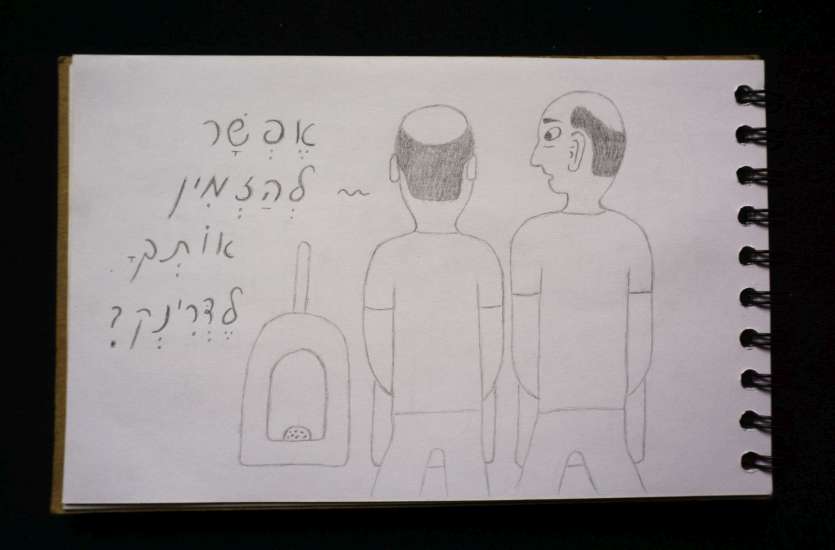 אֶפְשָׁר
לְהַזְמִין
אוֹתְךָ
לְדְרִינְק?